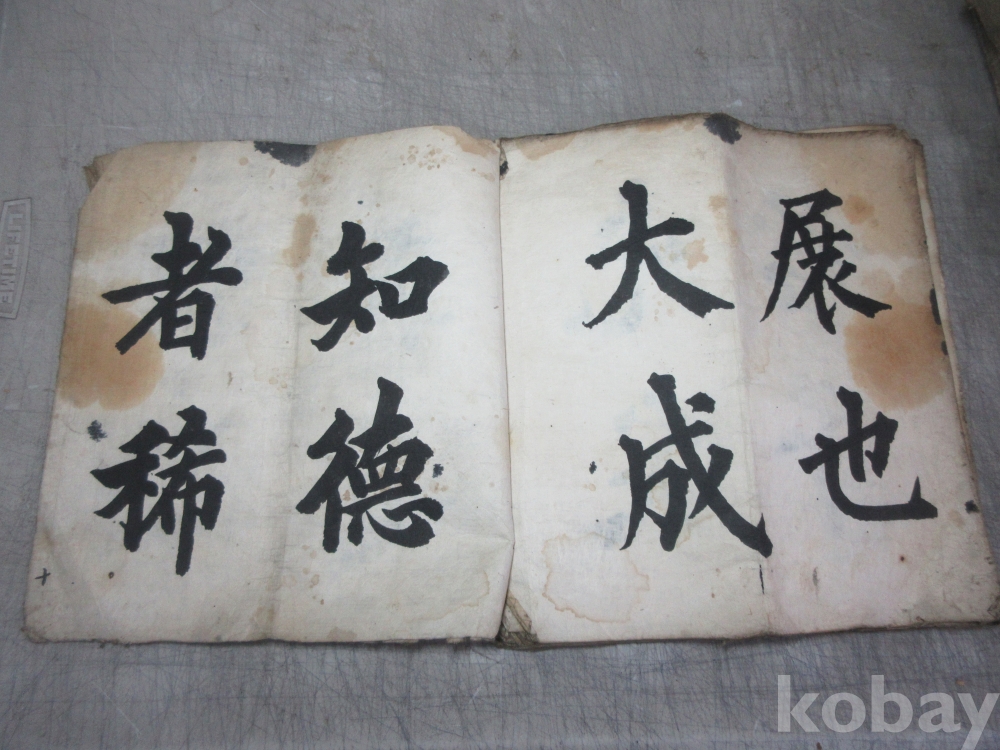 展也
大成
知德
者稀
十
kobay